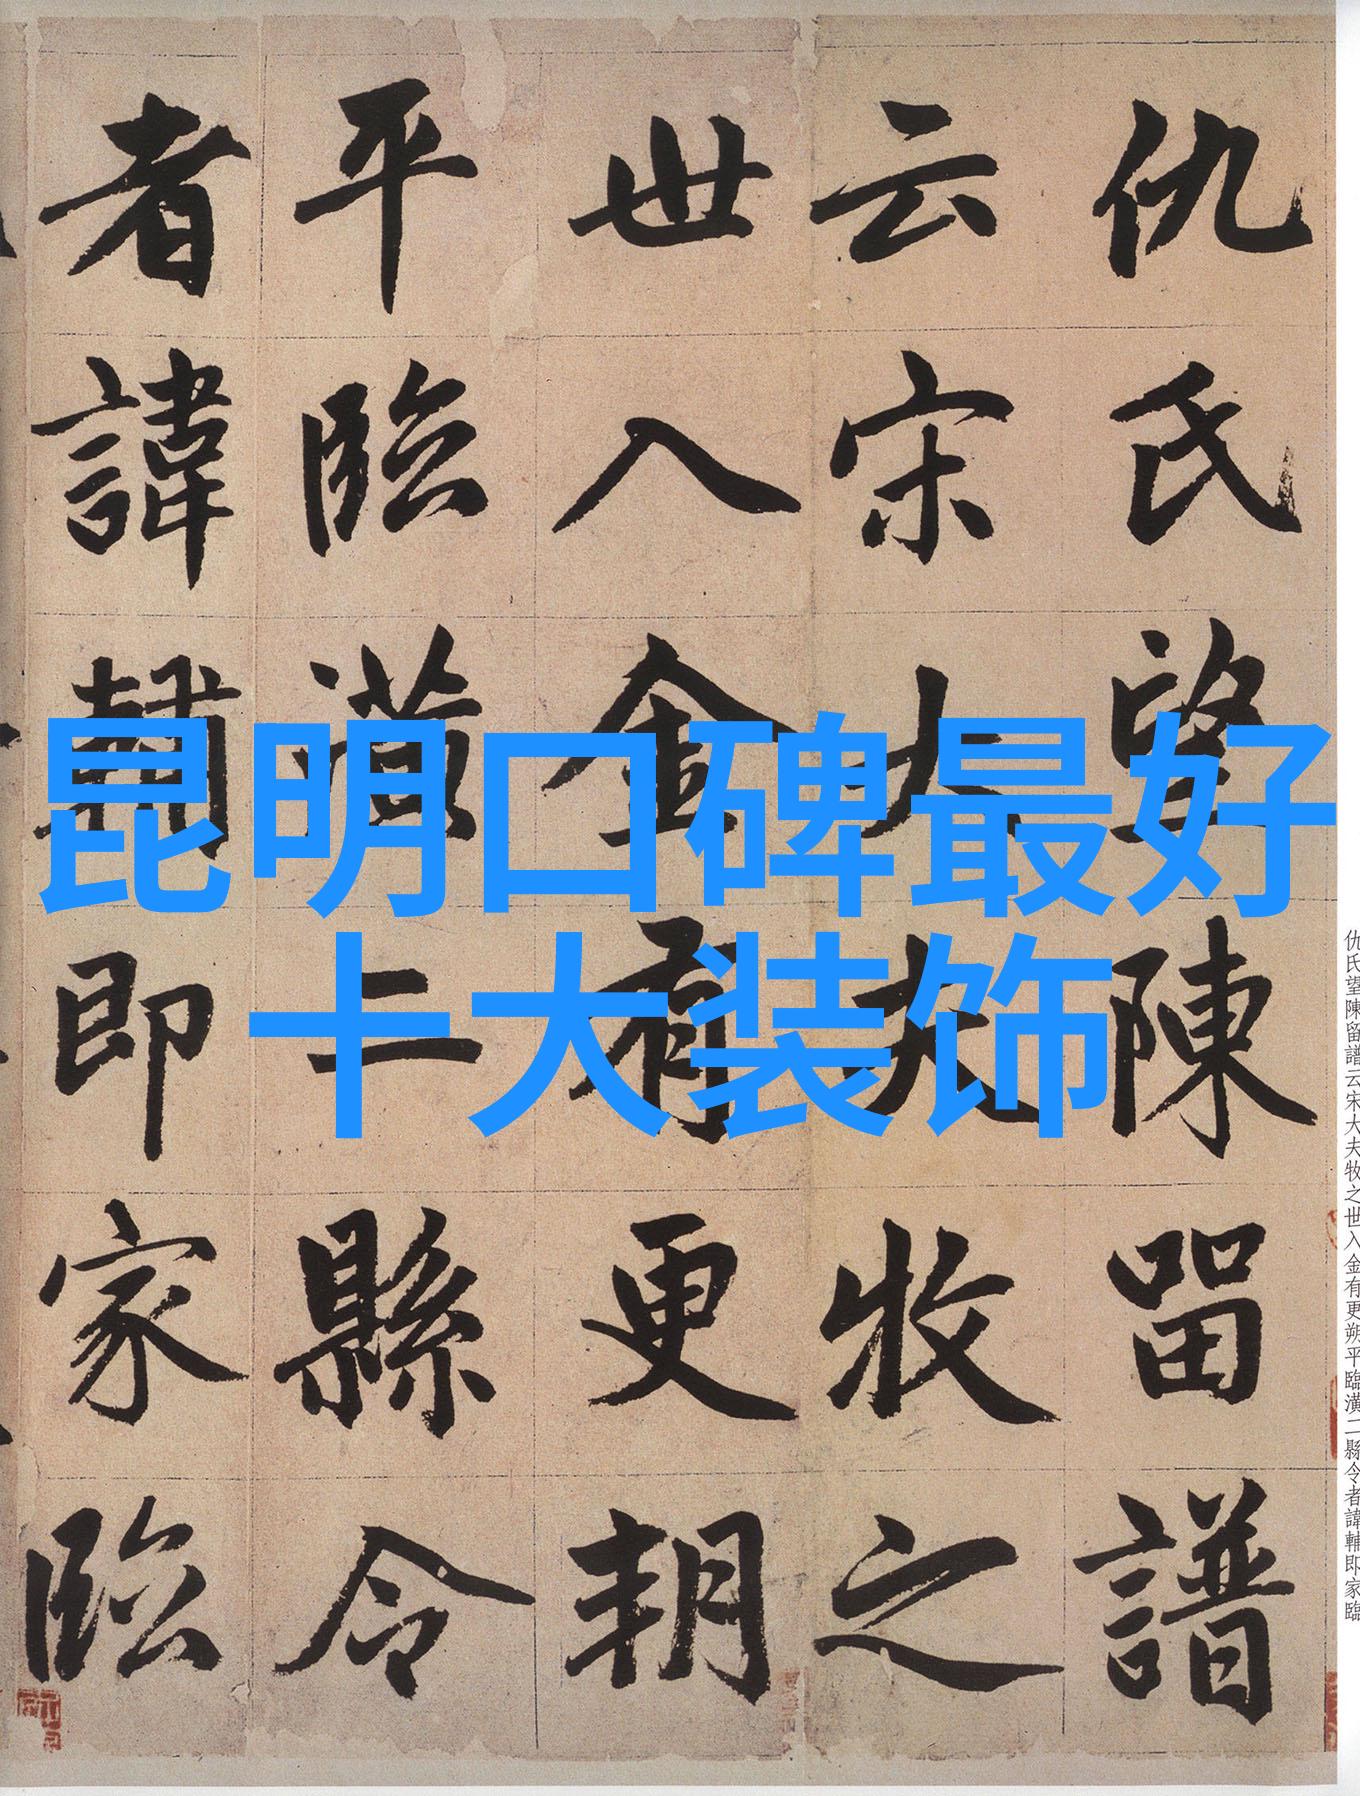 仇氏望陳留譜
云宋大夫牧之
世入金有更朔
平臨潢二縣令
者諱輔即家臨
昆明口碑最好
十大装饰
仇氏望陳留譜云宋大夫牧之世入金有更朔平臨潢二縣令者諱輔即家臨